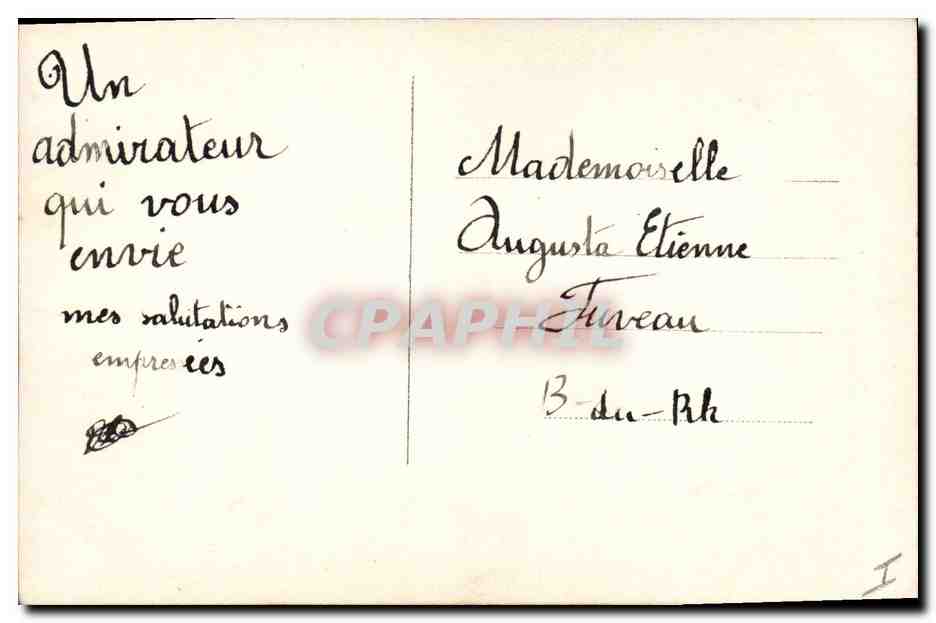 Un
admirateur
qui vous
envie
mes salutations
empresées
Mademoiselle
Augusta Etienne
Fuveau
B-du-Rh
CPAPHIL
I